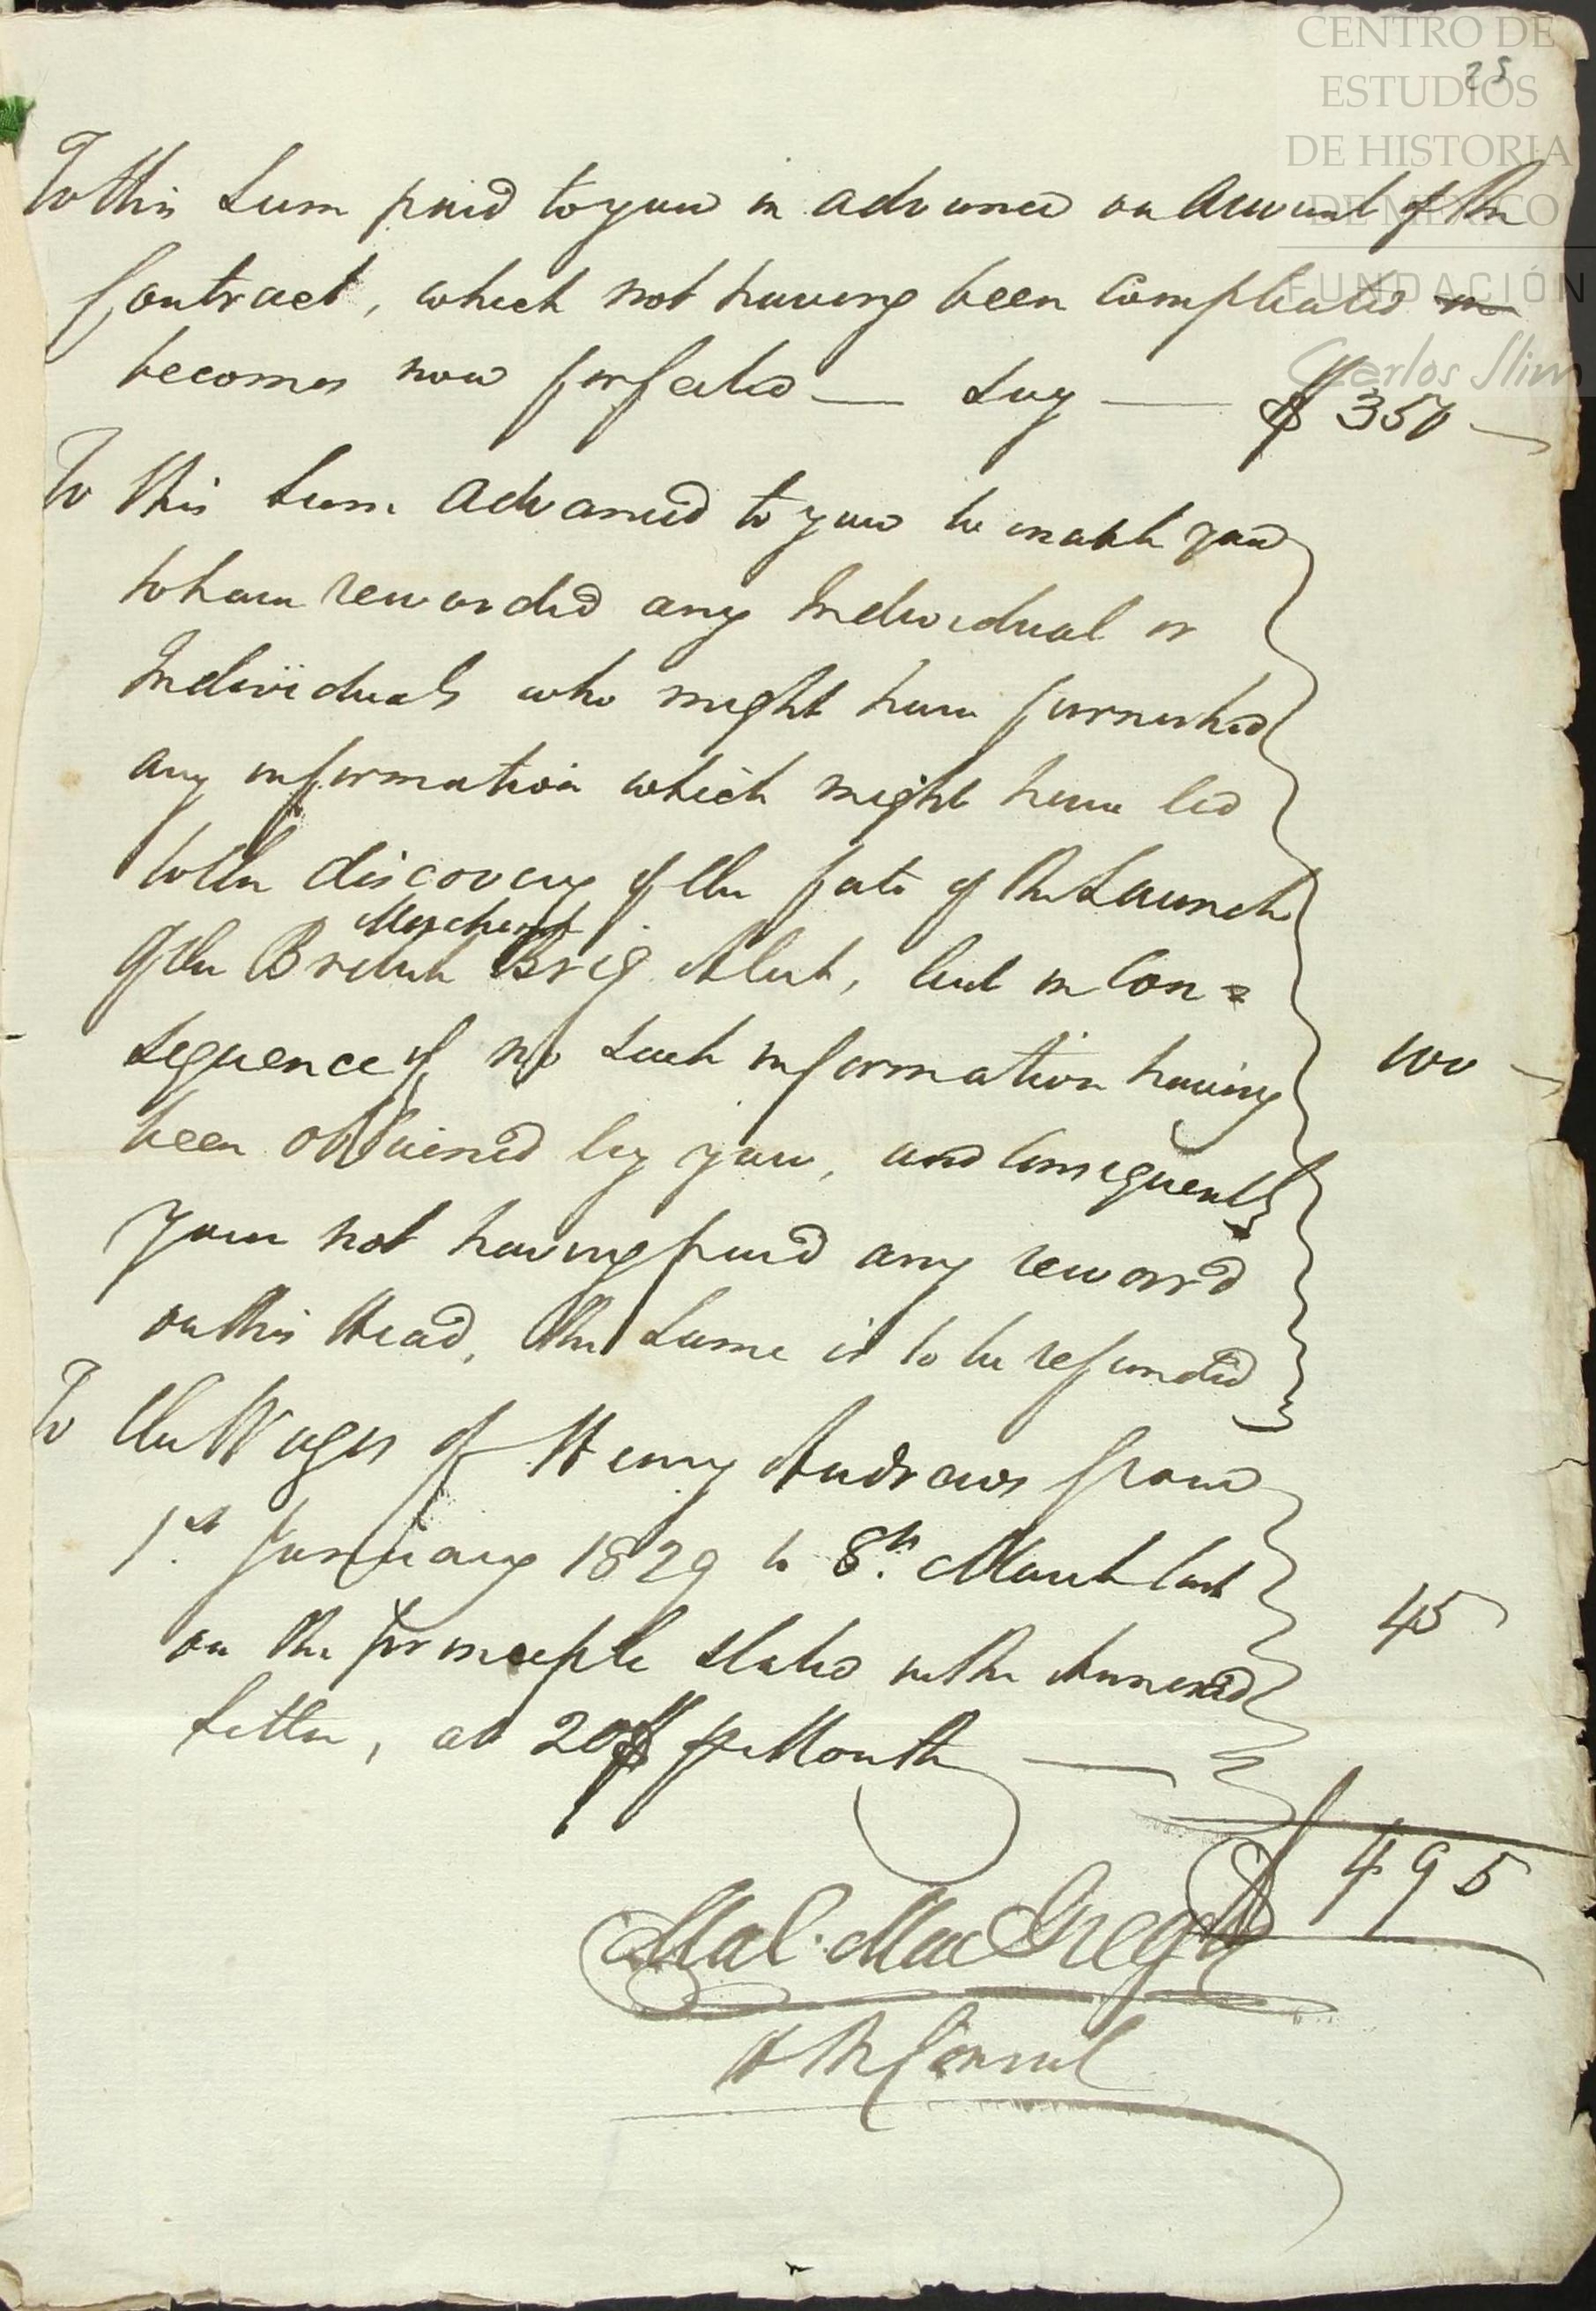 CENTRO DE
ESTUDIOS
DE HISTORIA
DE MÉXICO
FUNDACIÓN
Carlos Slim
25
To this Sum paid to you in advance on Account of the
Contract, which not having been Compleated
becomes now forfeited — Say — $ 350 —
To this Sum Advanced to you to enable you
to have rewarded any Individual or
Individuals who might have furnished
any information which might have led
to the discovery of the fate of the Launch
Merchant
of the British Brig Alert, but in Con=
sequence of no such information having 100 —
been obtained by you, and consequently
your not having paid any reward
on this Head, the same is to be refunded
To the Wages of Henry Andrews from
1st January 1829 to 8th March last
on the principle stated in the Annexed 45
Letter, at 20$ p Month —
$ 495
Mal. MacGregor
HM Consul